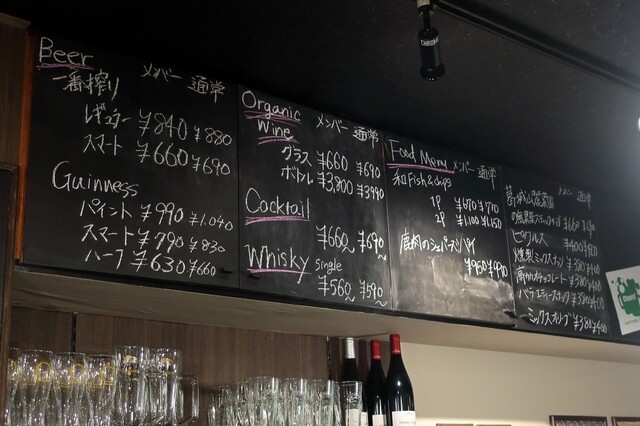 Beer
一番搾り メンバー 通常
レギュラー ¥840 ¥880
スマート ¥660 ¥690
Guinness
パイント ¥990 ¥1.040
スマート ¥790 ¥830
ハーフ ¥630 ¥660
Organic Wine メンバー 通常
グラス ¥660 ¥690
ボトル ¥3,800 ¥3990
Cocktail
¥660~ ¥690~
Whisky single
¥560~ ¥590~
Food Menu メンバー 通常
和Fish&chips
1P ¥670 ¥710
2P ¥1.100 ¥1.150
鹿肉のシェパーズパイ
¥960 ¥990
メンバー 通常
ピクルス ¥400
燻製ミックスナッツ
高カカオチョコレート
バラエティーナッツ
ミックスオリーブ ¥380 ¥400